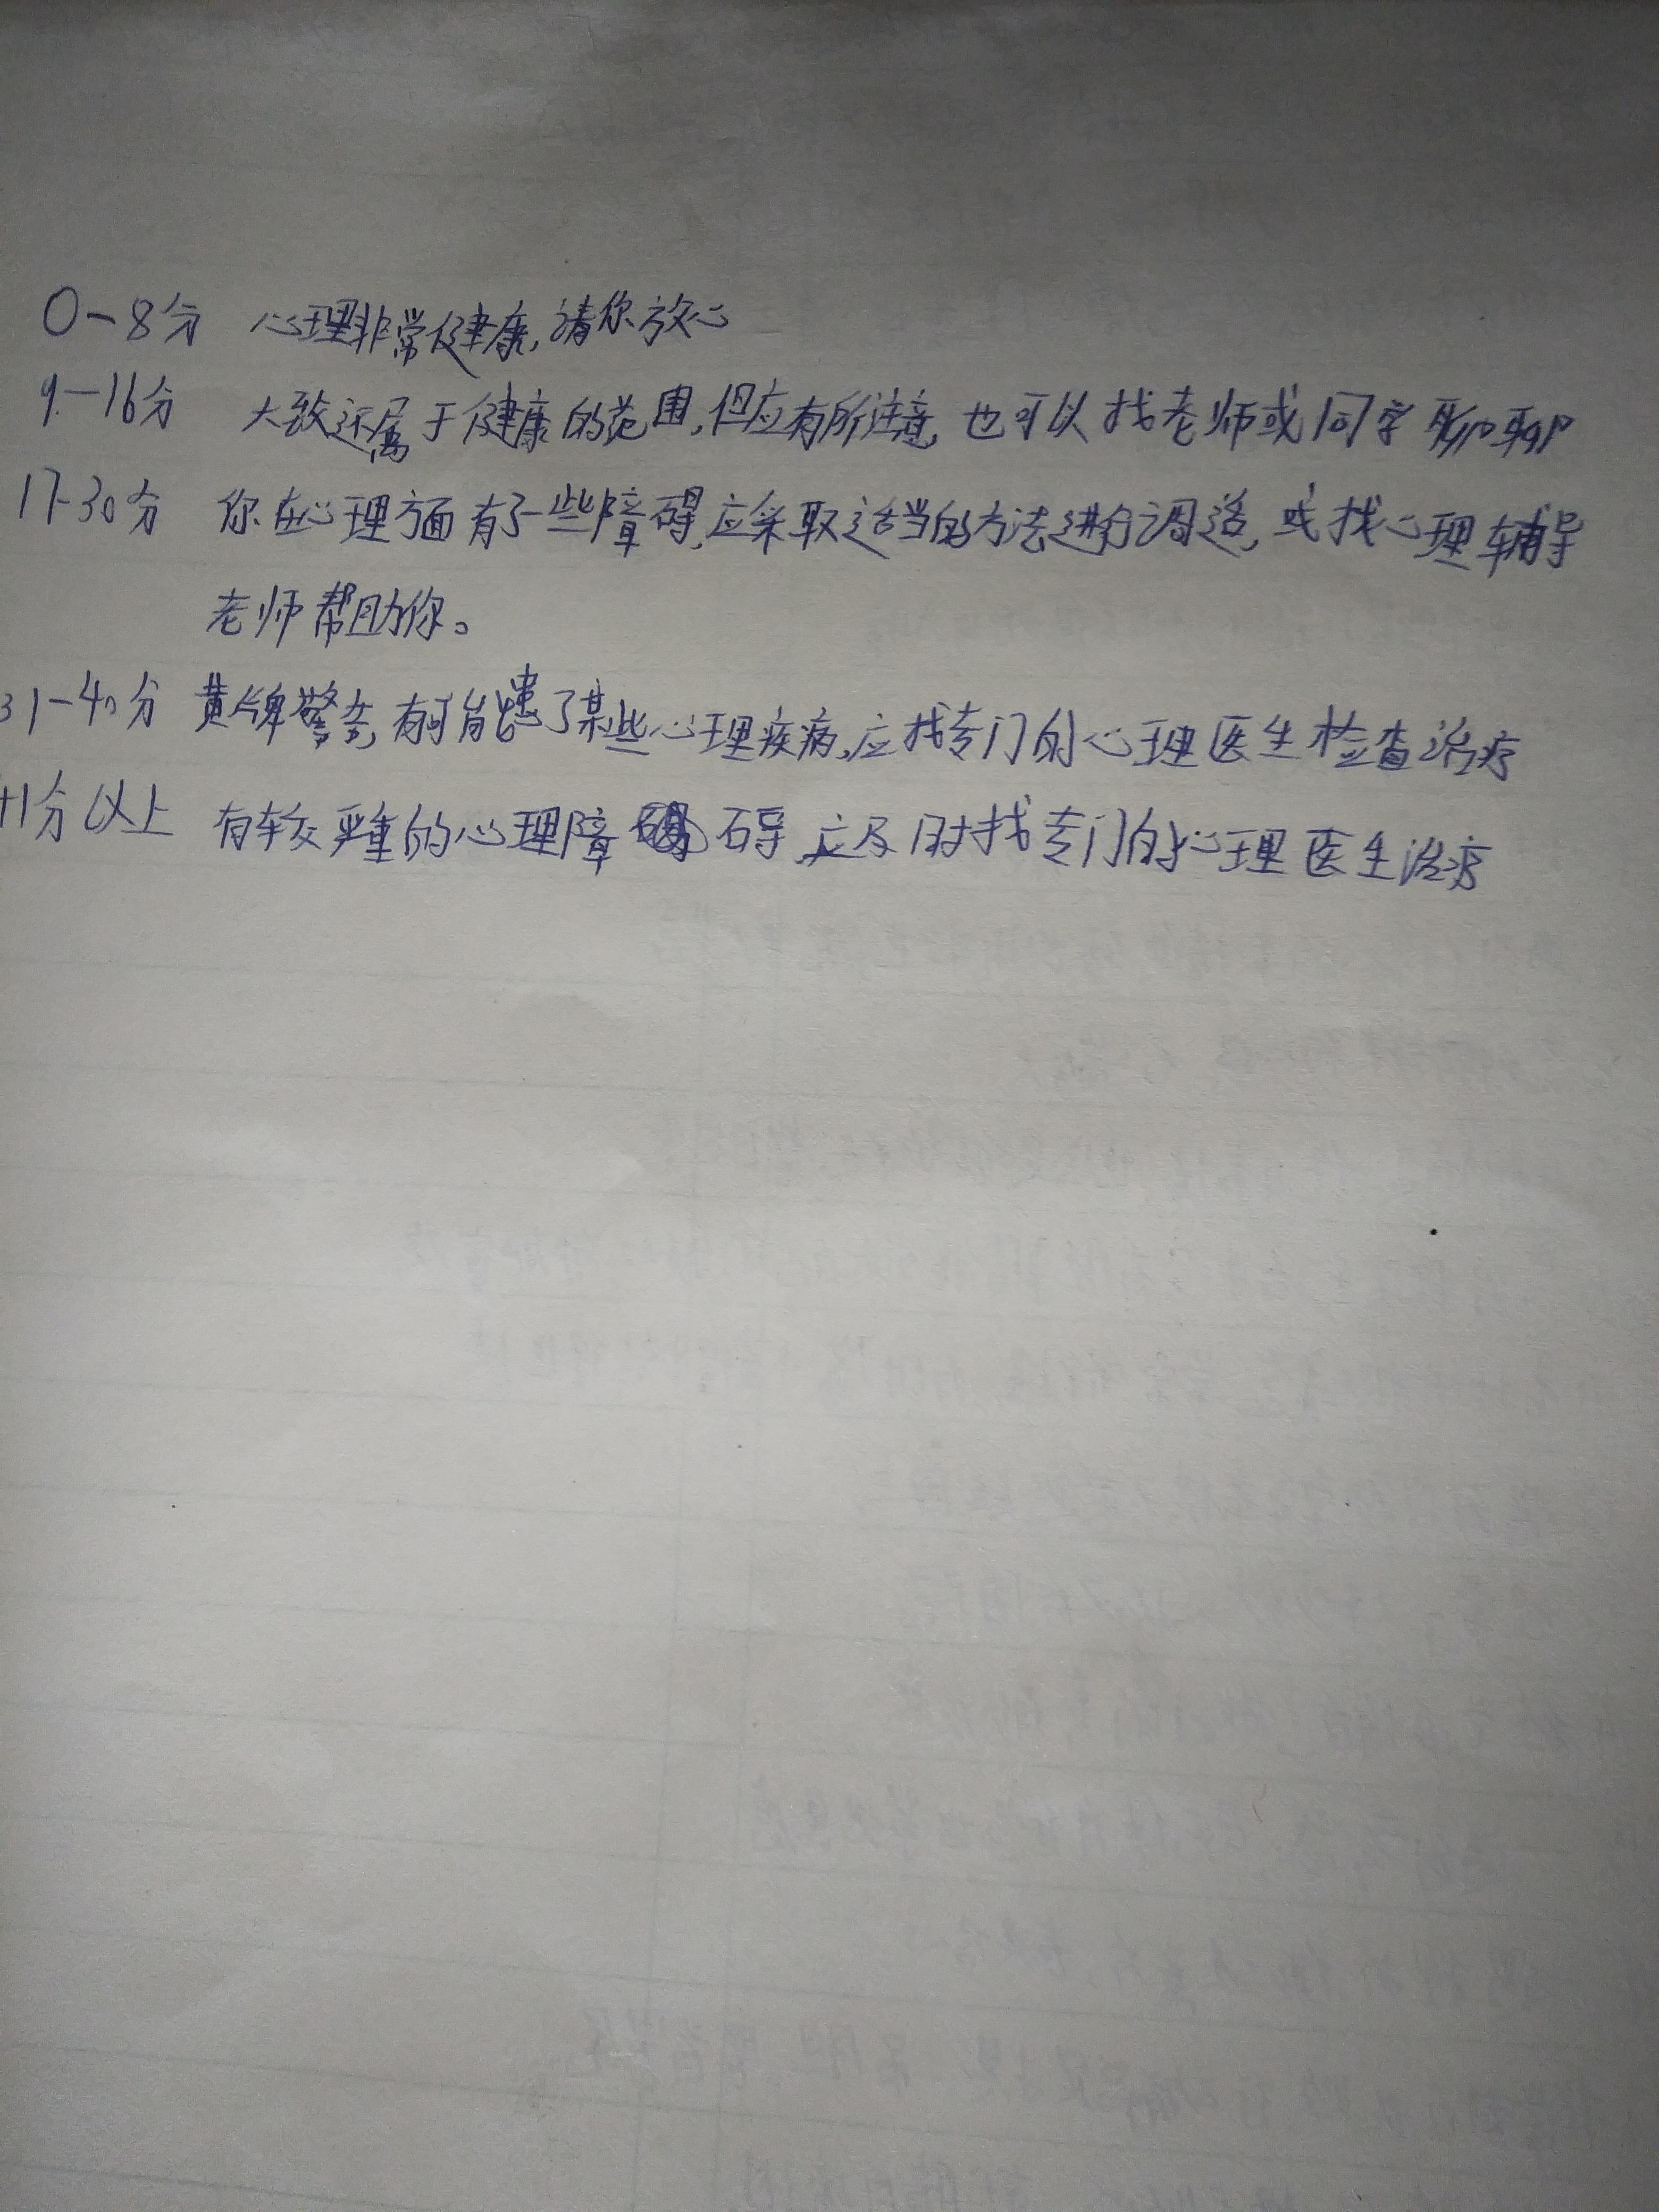 0-8分 心理非常健康,请你放心
9-16分 大致还属于健康的范围,但应有所注意,也可以找老师或同学聊聊
17-30分 你在心理方面有了一些障碍,应采取适当的方法进行调适,或找心理辅导
老师帮助你。
31-40分 黄牌警告,有可能患了某些心理疾病,应找专门的心理医生检查治疗
41分以上 有较严重的心理障碍,应及时找专门的心理医生治疗